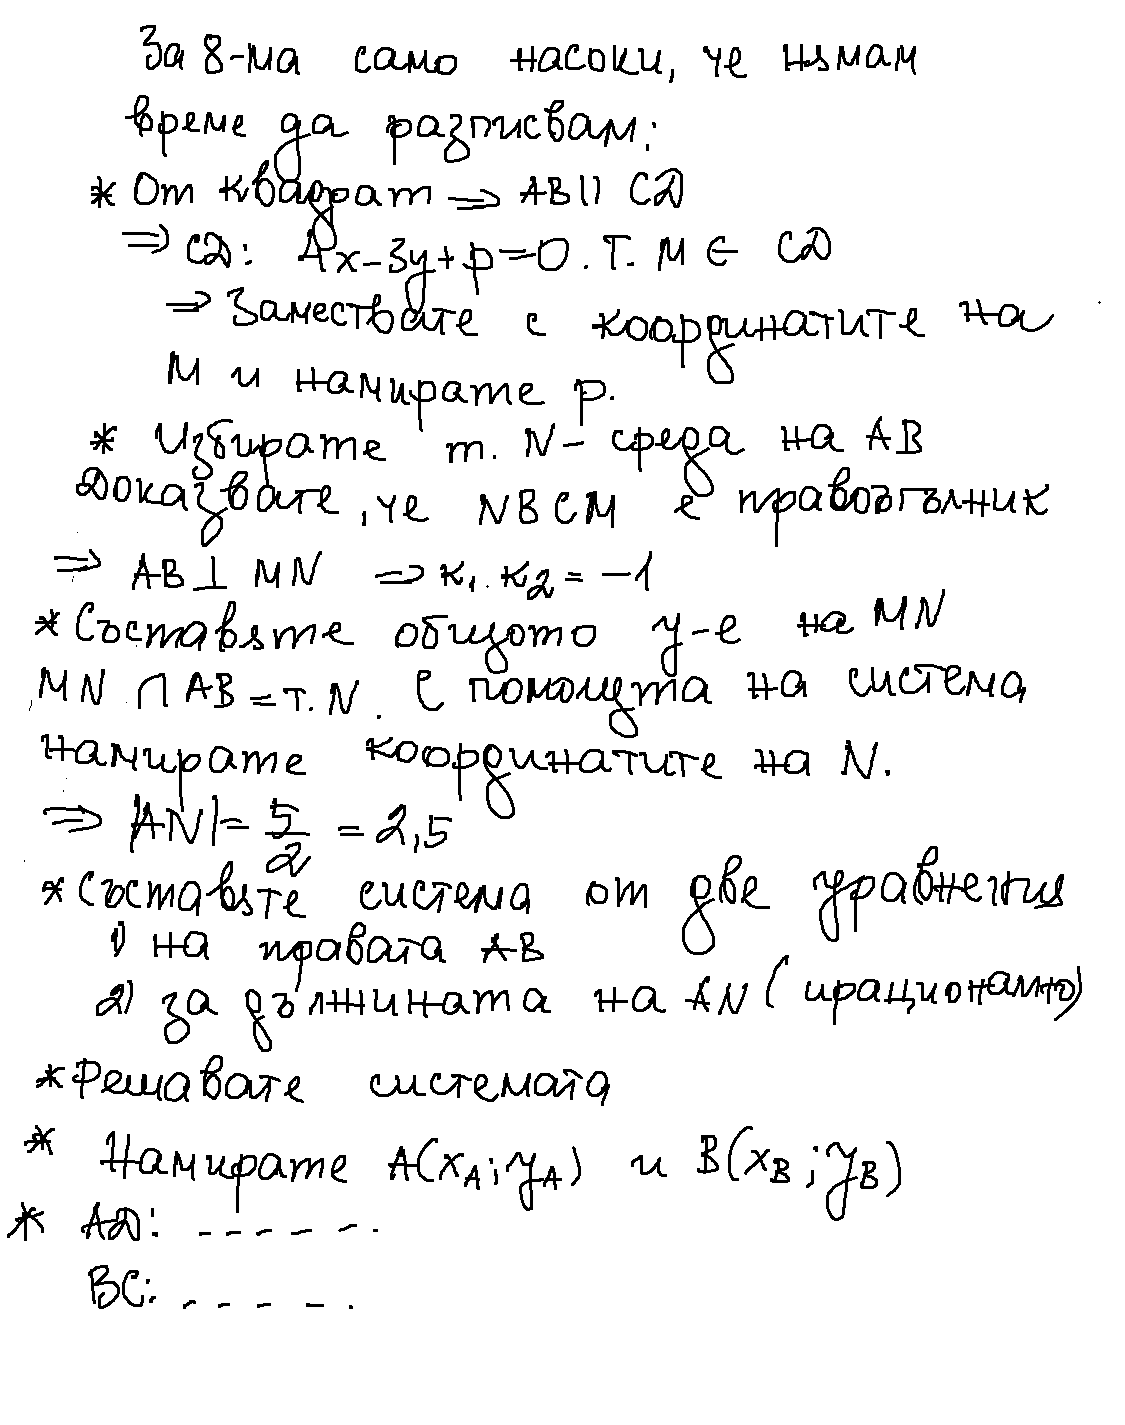 За 8-ма само насоки, че нямам
време да разписвам:
* От квадрат ⇒ AB || CD
⇒ CD: 4x-3y+p=0. т. M ∈ CD
⇒ Замествате с координатите на
M и намирате p.
* Избирате т. N - среда на AB
Доказвате, че NBCM е правоъгълник
⇒ AB ⊥ MN ⇒ k₁. k₂ = -1
* Съставяте общото у-е на MN
MN ∩ AB = т. N. С помощта на система
намирате координатите на N.
⇒ |AN| = 5/2 = 2,5
* Съставяте система от две уравнения
1) на правата AB
2) за дължината на AN (ирационално)
* Решавате системата
* Намирате A(x_A; y_A) и B(x_B; y_B)
* AD: - - - - - -.
BC: - - - - -.